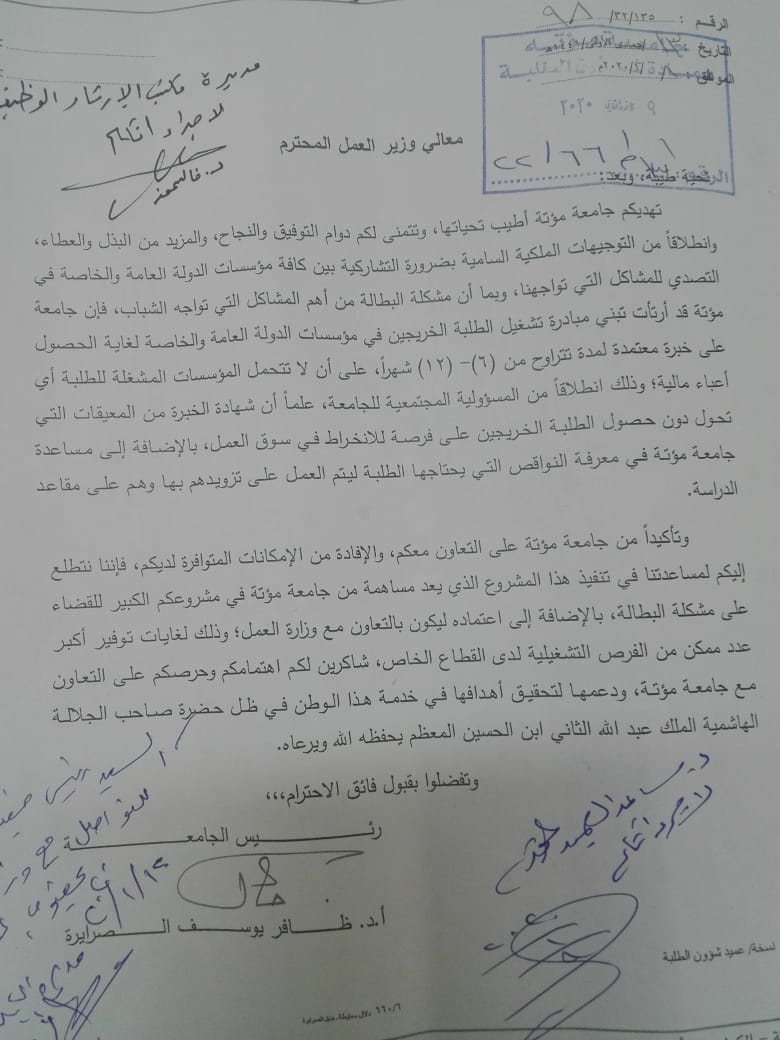 الرقم : ١٣٥/٣٢/ ٩٨
التاريخ :
الموافق :
٩ كانون الثاني ٢٠٢٠
الرقم ٢٢/٦٦/
مديرة مكتب الإرشاد الوظيفي
لاجراء اتكم
معالي وزير العمل المحترم
تحية طيبة، وبعد:
تهديكم جامعة مؤتة أطيب تحياتها، وتتمنى لكم دوام التوفيق والنجاح، والمزيد من البذل والعطاء،
وانطلاقاً من التوجيهات الملكية السامية بضرورة التشاركية بين كافة مؤسسات الدولة العامة والخاصة في
التصدي للمشاكل التي تواجهنا، وبما أن مشكلة البطالة من أهم المشاكل التي تواجه الشباب، فإن جامعة
مؤتة قد أرتأت تبني مبادرة تشغيل الطلبة الخريجين في مؤسسات الدولة العامة والخاصة لغاية الحصول
على خبرة معتمدة لمدة تتراوح من (٦)- (١٢) شهراً، على أن لا تتحمل المؤسسات المشغلة للطلبة أي
أعباء مالية؛ وذلك انطلاقاً من المسؤولية المجتمعية للجامعة، علماً أن شهادة الخبرة من المعيقات التي
تحول دون حصول الطلبة الخريجين على فرصة للانخراط في سوق العمل، بالإضافة إلى مساعدة
جامعة مؤتة في معرفة النواقص التي يحتاجها الطلبة ليتم العمل على تزويدهم بها وهم على مقاعد
الدراسة.
وتأكيداً من جامعة مؤتة على التعاون معكم، والإفادة من الإمكانات المتوافرة لديكم، فإننا نتطلع
إليكم لمساعدتنا في تنفيذ هذا المشروع الذي يعد مساهمة من جامعة مؤتة في مشروعكم الكبير للقضاء
على مشكلة البطالة، بالإضافة إلى اعتماده ليكون بالتعاون مع وزارة العمل؛ وذلك لغايات توفير أكبر
عدد ممكن من الفرص التشغيلية لدى القطاع الخاص، شاكرين لكم اهتمامكم وحرصكم على التعاون
مع جامعة مؤتة، ودعمها لتحقيق أهدافها في خدمة هذا الوطن في ظل حضرة صاحب الجلالة
الهاشمية الملك عبد الله الثاني ابن الحسين المعظم يحفظه الله ويرعاه.
وتفضلوا بقبول فائق الاحترام،،،
رئيس الجامعة
أ.د. ظافر يوسف الصرايرة
نسخة/ عميد شؤون الطلبة
٦٦٠/٦